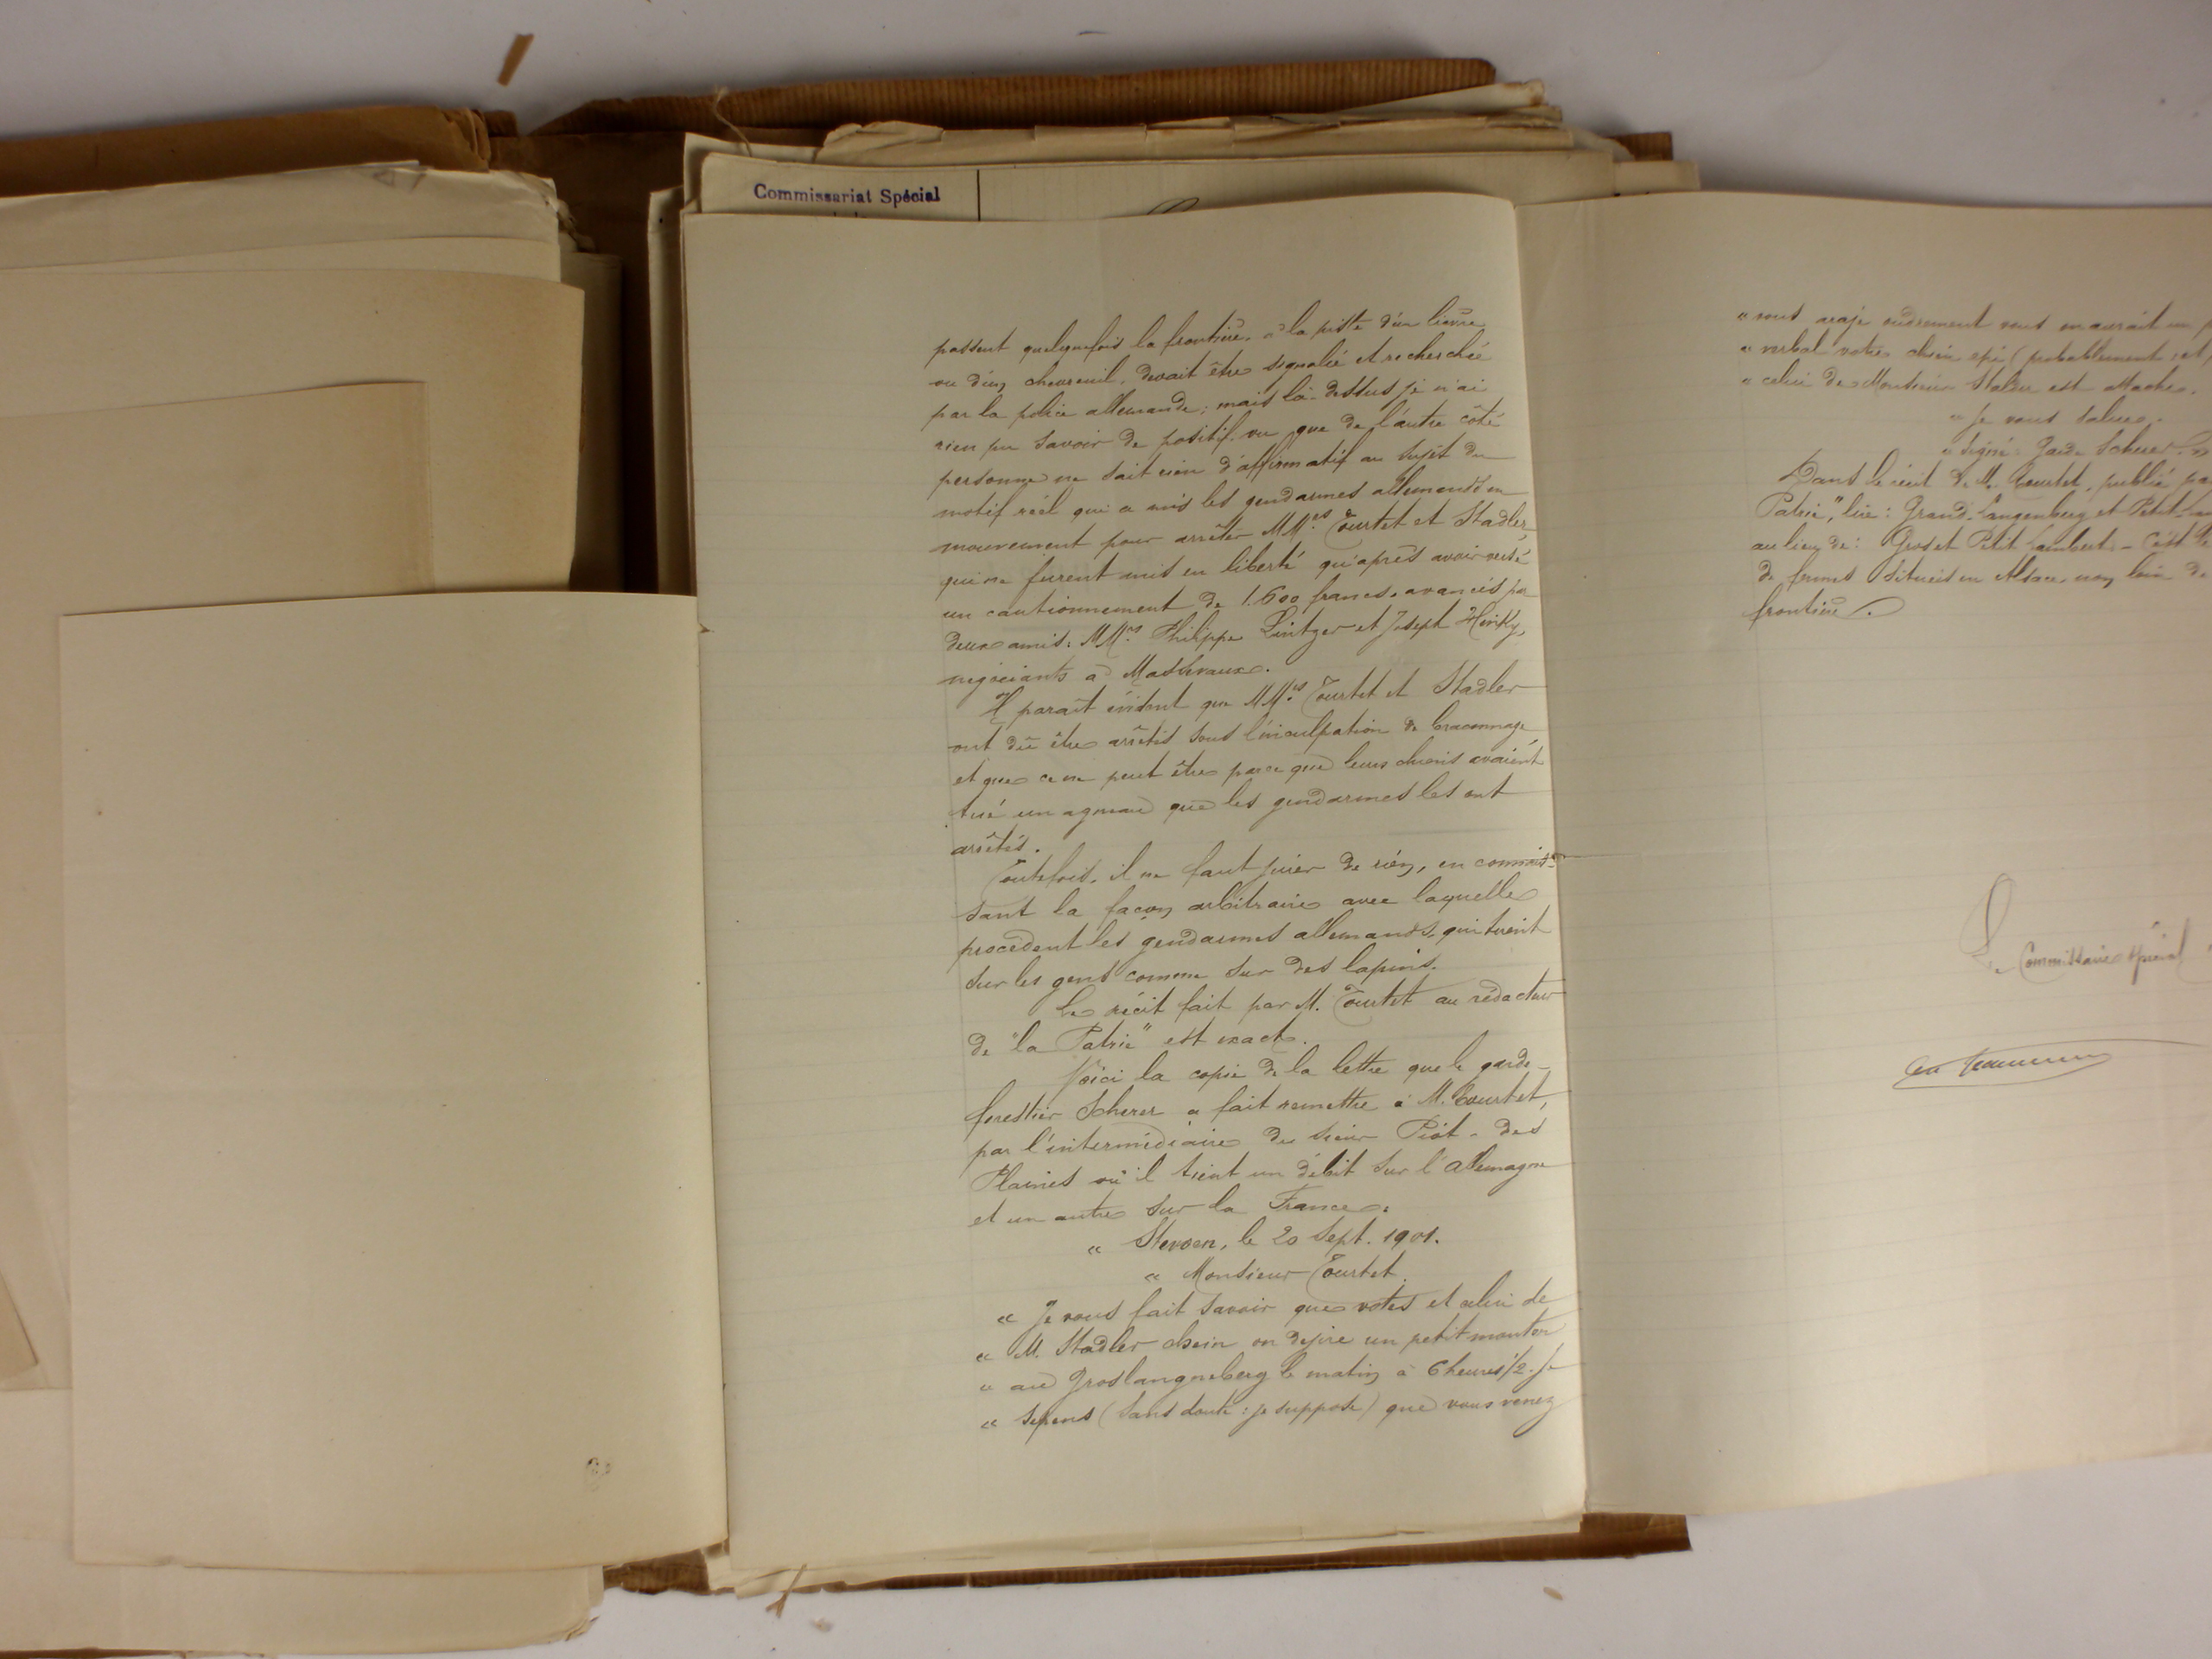 Commissariat Spécial
passent quelquefois la frontière, à la piste d'un lièvre
ou d'un chevreuil, devait être signalé et recherché
par la police allemande; mais là-dessus je n'ai
rien pu savoir de positif vu que de l'autre côté
personne ne sait rien d'affirmatif au sujet du
motif réel qui a mis les gendarmes allemands en
mouvement pour arrêter MM.rs Tourtet et Stadler,
qui ne furent mis en liberté qu'après avoir versé
un cautionnement de 1.600 francs, avancés par
deux amis: MM.rs Philippe Lintzer et Joseph Hirky,
négociants à Masevaux.
Il paraît évident que MM.rs Tourtet et Stadler
ont dû être arrêtés sous l'inculpation de braconnage
et que ce ne peut être parce que leurs chiens avaient
tué un agneau que les gendarmes les ont
arrêtés.
Toutefois, il ne faut jurer de rien, en connais-
sant la façon arbitraire avec laquelle
procèdent les gendarmes allemands, qui tirent
sur les gens comme sur des lapins.
Le récit fait par M. Tourtet au rédacteur
de "la Patrie" est exact.
Voici la copie de la lettre que le garde-
forestier Scherer a fait remettre à M. Tourtet,
par l'intermédiaire du sieur Piot - des
Plaines où il tient un débit sur l'Allemagne
et un autre sur la France:
" Stevoen, le 20 Sept. 1901.
" Monsieur Tourtet.
" Je vous fait savoir que votes et celui de
" M. Stadler chein on dejire un petit mouton
" au Groslangneberg le matin à 6 heures 1/2. Je
" sepens (sans doute: je suppose) que vous venez
" vous
" verbal votre chein epi (probablement: et
" celui de Monsieur Stalder est attache.
" Je vous salue.
" Signé: Garde Scherer. "
Dans le récit de M. Tourtet, publié par
Patrie", lire: Grand-Langenberg et Petit-
au lieu de: Gros et Petit Lambert - C'est
de fermes situées en Alsace non loin de
frontière.
Le Commissaire spécial